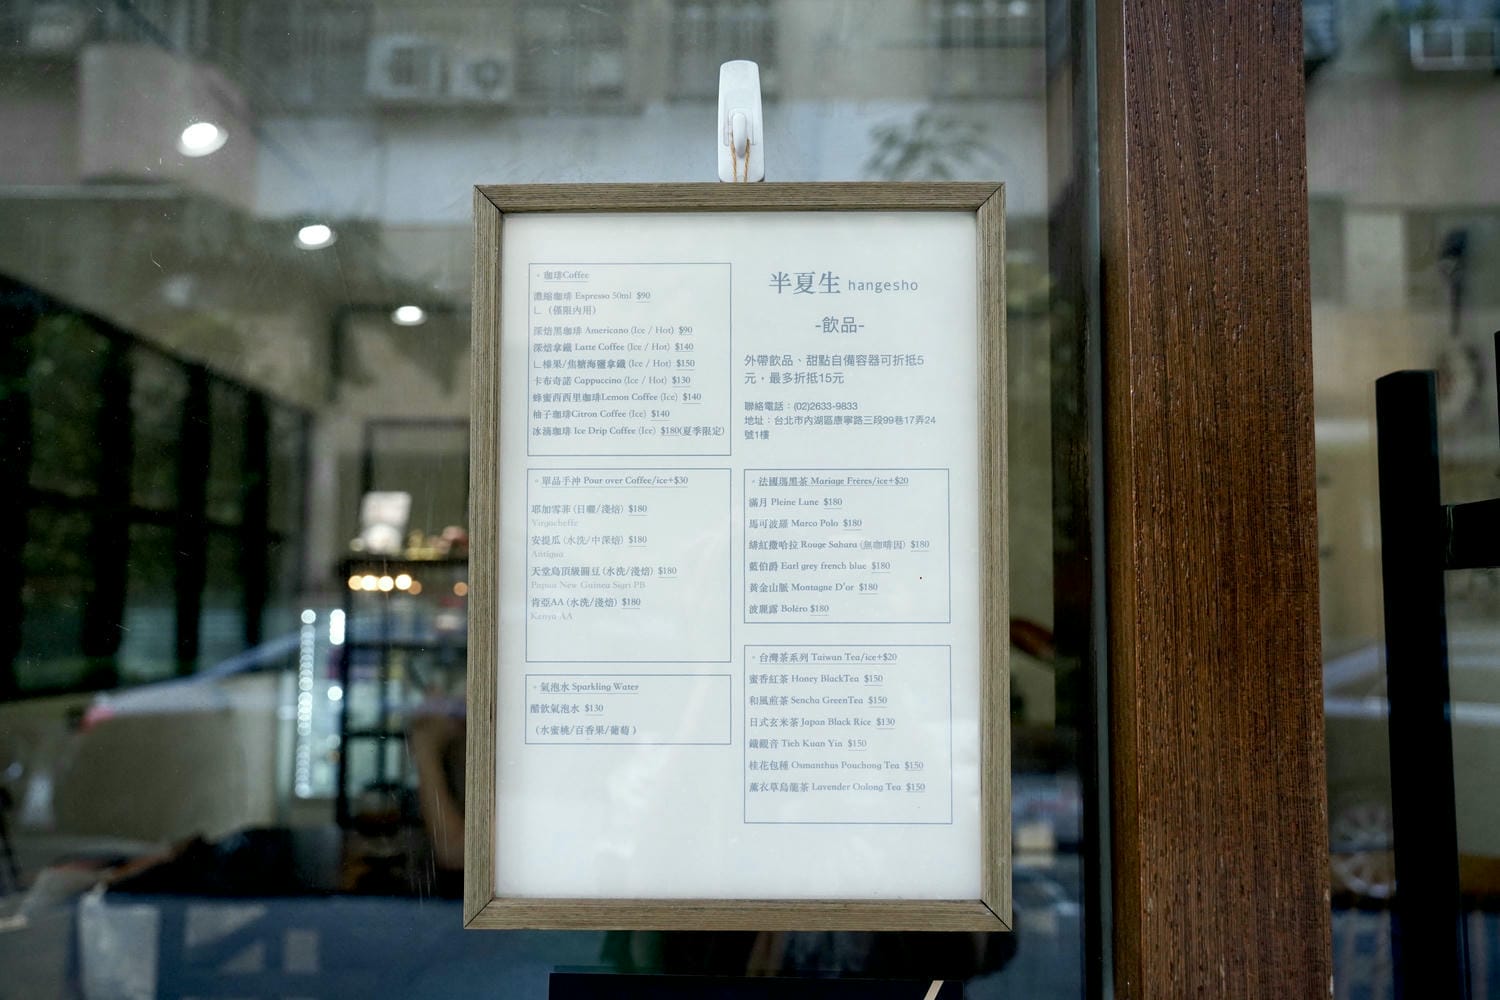 ◦ 珈琲Coffee
濃縮珈琲 Espresso 50ml $90
∟ (僅限內用)
深焙黑珈琲 Americano (Ice / Hot) $90
深焙拿鐵 Latte Coffee (Ice / Hot) $140
∟榛果/焦糖海鹽拿鐵 (Ice / Hot) $150
卡布奇諾 Cappuccino (Ice / Hot) $130
蜂蜜西西里珈琲Lemon Coffee (Ice) $140
柚子珈琲Citron Coffee (Ice) $140
冰滴珈琲 Ice Drip Coffee (Ice) $180(夏季限定)
◦ 單品手沖 Pour over Coffee/ice+$30
耶加雪菲 (日曬/淺焙) $180
Yirgacheffe
安提瓜 (水洗/中深焙) $180
Antigua
天堂鳥頂級圓豆 (水洗/淺焙) $180
Papua New Guinea Sigri PB
肯亞AA (水洗/淺焙) $180
Kenya AA
◦ 氣泡水 Sparkling Water
醋飲氣泡水 $130
(水蜜桃/百香果/葡萄 )
半夏生 hangesho
-飲品-
外帶飲品、甜點自備容器可折抵5
元，最多折抵15元
聯絡電話：(02)2633-9833
地址：台北市內湖區康寧路三段99巷17弄24
號1樓
◦ 法國瑪黑茶 Mariage Frères/ice+$20
滿月 Pleine Lune $180
馬可波羅 Marco Polo $180
緋紅撒哈拉 Rouge Sahara (無咖啡因) $180
藍伯爵 Earl grey french blue $180
黃金山脈 Montagne D'or $180
波麗露 Boléro $180
◦ 台灣茶系列 Taiwan Tea/ice+$20
蜜香紅茶 Honey BlackTea $150
和風煎茶 Sencha GreenTea $150
日式玄米茶 Japan Black Rice $130
鐵觀音 Tieh Kuan Yin $150
桂花包種 Osmanthus Pouchong Tea $150
薰衣草烏龍茶 Lavender Oolong Tea $150